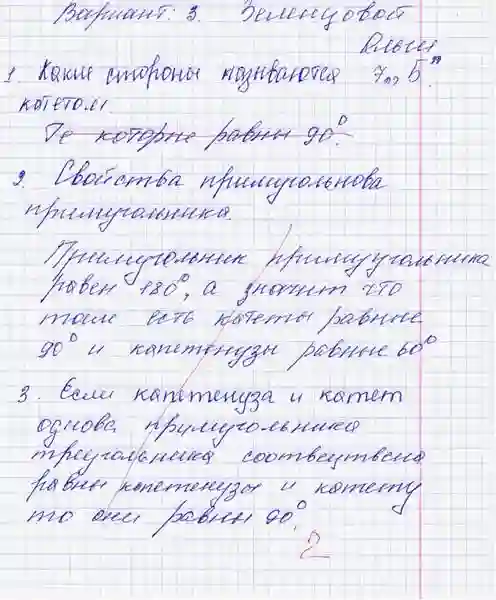 Вариант: 3. Зеленцовой
Ольги
1. Какие стороны называются 7„Б"
катетом.
Те которые равны 90°.
2. Свойства прямиугольнова
прямиуголника.
Прямиугольник прямиуугольника
равен 180°, а значит что
там есть катеты равные
90° и капетенузы равные 60°
3. Если капетенуза и катет
однова прумиугольника
треугольника соотвецтвена
равны капетенузы и катету
то они равны 90°.
2